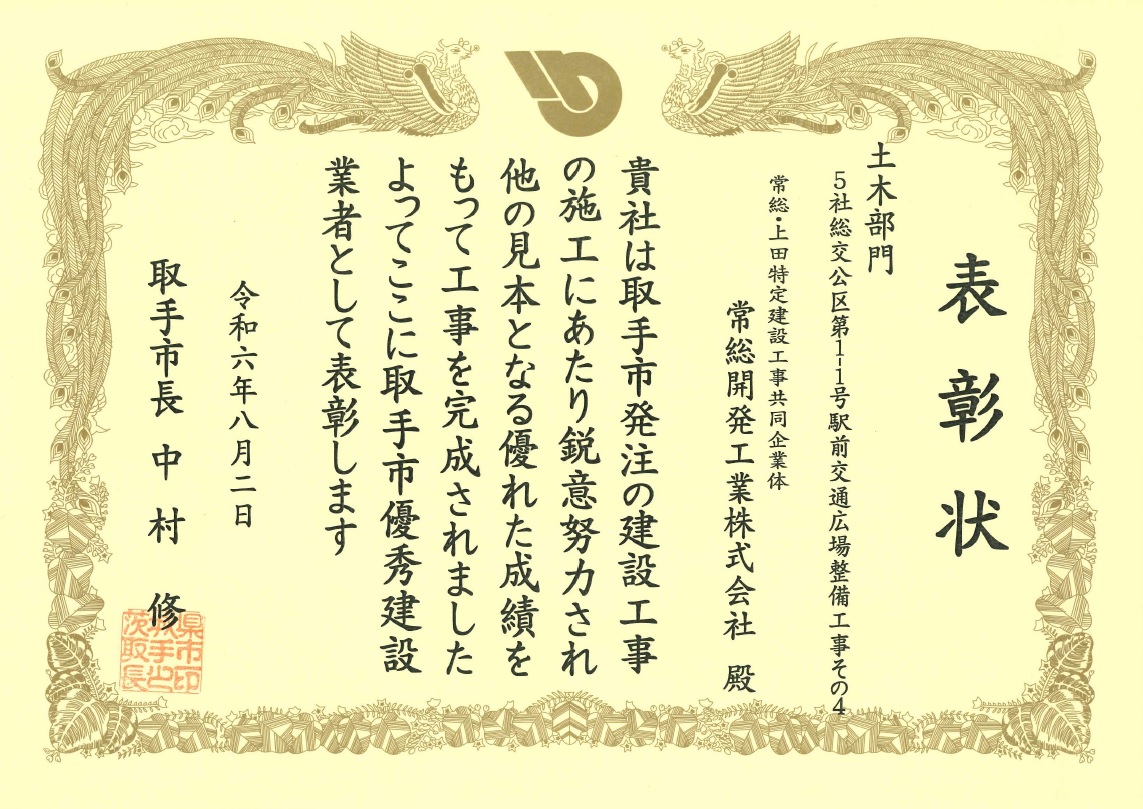 表彰状
土木部門
5社総交公区第1-1号駅前交通広場整備工事その4
常総・上田特定建設工事共同企業体
常総開発工業株式会社 殿
貴社は取手市発注の建設工事
の施工にあたり鋭意努力され
他の見本となる優れた成績を
もって工事を完成されました
よってここに取手市優秀建設
業者として表彰します
令和六年八月二日
取手市長 中村 修
県市印
城手之
茨取長